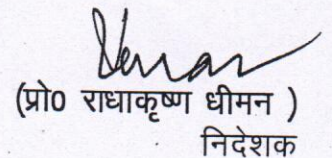 (प्रो0 राधाकृष्ण धीमन )
निदेशक